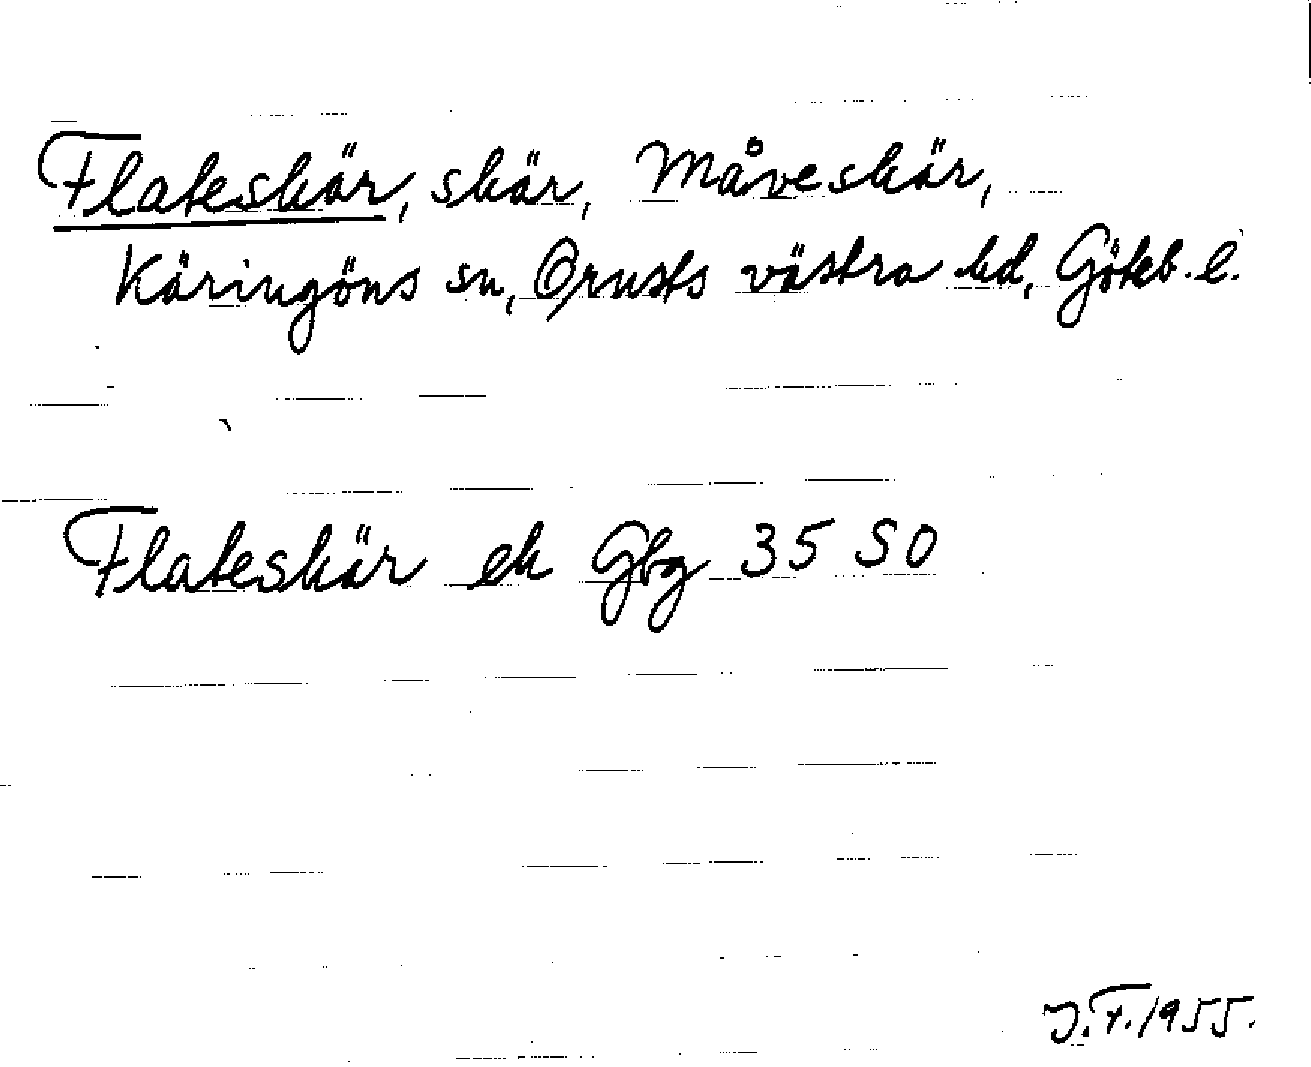 Flateskär, skär, Måveskär,
Käringöns sn, Orusts västra hd, Göteb. l.
Flateskär ek Gbg 35 SO
J.F. 1955.